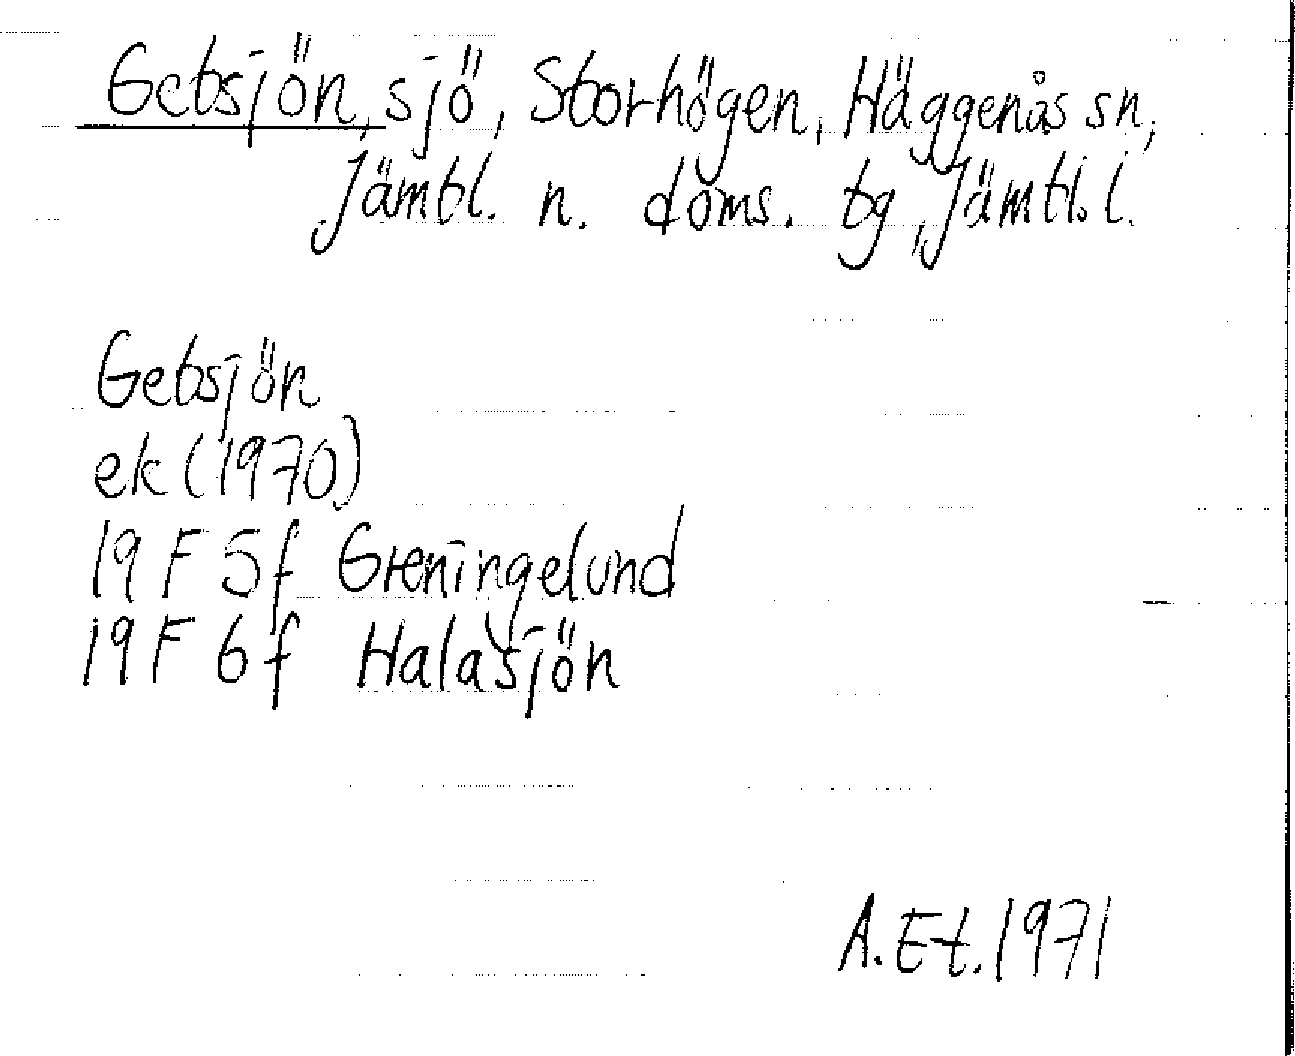 Getsjön, sjö, Storhögen, Häggenås sn,
Jämtl. n. doms. tg, Jämtl. l.
Getsjön
ek (1970)
19 F 5f Greningelund
19 F 6f Halasjön
A. Et. 1971